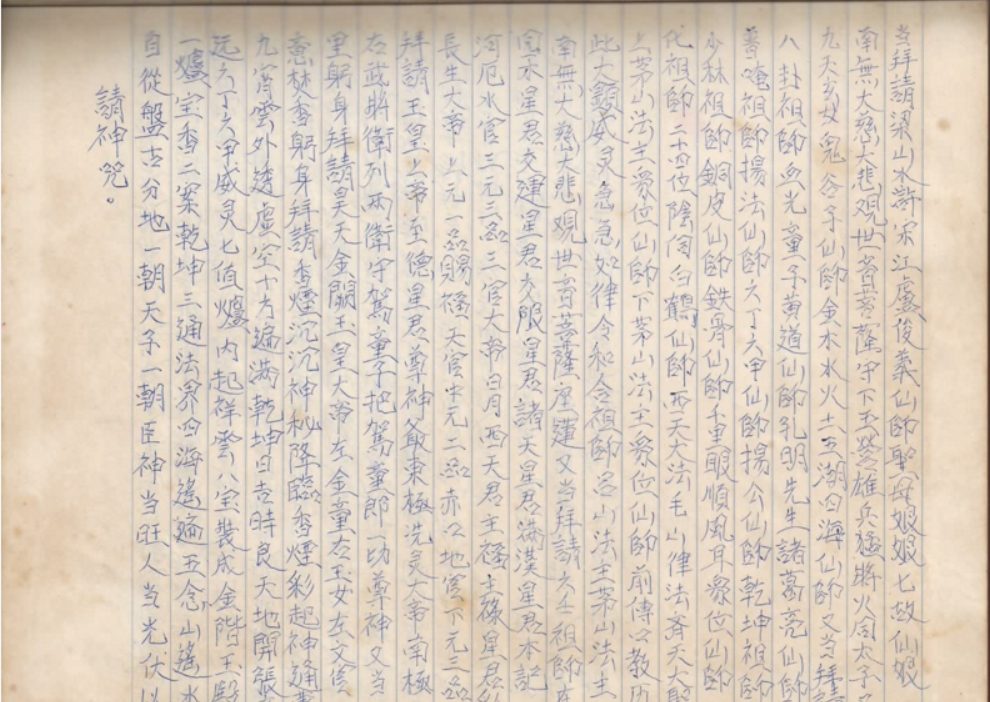 請神咒。
自從盤古分地一朝天子一朝臣神当旺人当光伏以
一爐宝香二案乾坤三通法界四海遙遙五念山遙水
远六丁六甲威灵七值爐內起祥雲八宝裝成金階玉
九宵雲外透虛空十方遍满乾坤日吉時良天地開張
意焚香躬身拜請香煙沉沉神秘降臨香煙彩起神通
里躬身拜請昊天金闕玉皇大帝左金童右玉女左文官
右武将衛列两衛守駕童子把駕童郎一切尊神又当
拜請玉皇上帝至德星君尊神爺東極洗灵大帝南極
長生大帝上元一品賜福天官中元二品赤八地官下元三品
河厄水官三元三品三官大帝日月西天君主福主祿星君
星君交建星君大限星君諸天星君满漢星君本記
南無大慈大悲观世音菩薩座蓮又当拜請六壬祖師
此大显威灵急急如律令和合祖師呂山法主茅山法主
上茅山法主众位仙師下茅山法主众位仙師前傳口教
代祖師二十四位陰间白鶴仙師西天大法毛山律法齐天大聖
少林祖師銅皮仙師鉄骨仙師千里眼順風耳众位仙師
普唵祖師揚法仙師六丁六甲仙師揚公仙師乾坤祖師
八卦祖師血光童子黄道仙師孔明先生諸葛亮仙師
九天玄女鬼谷子仙師金木水火土五湖四海仙師又当拜請
南無大慈大悲观世音菩薩守下五营雄兵猛将火周太子
当拜請梁山水許宋江盧俊義仙師聖母娘娘七故仙娘